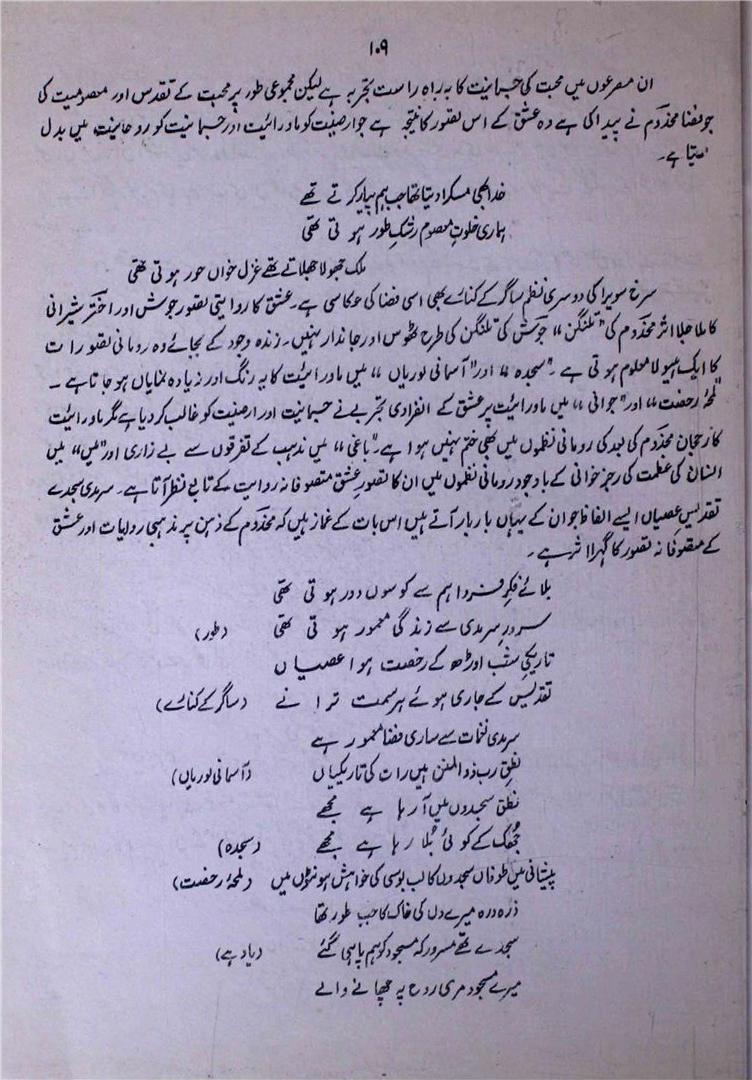 ۱۰۹
ان مصرعوں میں محبت کی جسمانیت کا بہ راہِ راست تجربہ ہے لیکن مجموعی طور پر محبت کے تقدس اور معصومیت کی
جو فضا مخدوم نے پیدا کی ہے وہ عشق کے اس تصور کا نتیجہ ہے جو ارضیت کو ماورائیت اور جسمانیت کو روحانیت میں بدل
دیتا ہے۔
خدا بھی مسکرا دیتا تھا جب ہم پیار کرتے تھے
ہماری خلوتِ معصوم رشکِ طور ہوتی تھی
ملک جھولا جھلاتے تھے غزل خواں حور ہوتی تھی
سرخ سویرا کی دوسری نظم ساگر کے کنارے بھی اسی فضا کی عکاسی ہے۔ عشق کا روایتی تصور جوش اور اختر شیرانی
کا ملا جلا اثر مخدوم کی "تلنگن" جوش کی تلنگن کی طرح ٹھوس اور جاندار نہیں۔ زندہ وجود کے بجائے وہ رومانی تصورات
کا ایک ہیولا معلوم ہوتی ہے۔ "سجدہ" اور "آسمانی لوریاں" میں ماورائیت کا یہ رنگ اور زیادہ نمایاں ہو جاتا ہے۔
"لمحۂ رخصت" اور "جوانی" میں ماورائیت پر عشق کے انفرادی تجربے نے جسمانیت اور ارضیت کو غالب کر دیا ہے مگر ماورائیت
کا رجحان مخدوم کی بعد کی رومانی نظموں میں بھی ختم نہیں ہوا ہے۔ "باغی" میں مذہب کے تفرقوں سے بے زاری اور "میں" میں
انسان کی عظمت کی رجز خوانی کے باوجود رومانی نظموں میں ان کا تصورِ عشق متصوفانہ روایت کے تابع نظر آتا ہے۔ سرمدی سجدے
تقدیس عصیاں ایسے الفاظ جو ان کے یہاں بار بار آتے ہیں اس بات کے غماز ہیں کہ مخدوم کے ذہن پر مذہبی روایات اور عشق
کے متصوفانہ تصور کا گہرا اثر ہے۔
بلائے فکرِ فردا ہم سے کوسوں دور ہوتی تھی
سرورِ سرمدی سے زندگی معمور ہوتی تھی (طور)
تاریکیِ شب اوڑھ کے رخصت ہوا عصیاں
تقدیس کے جاری ہوئے ہر سمت ترانے (ساگر کے کنارے)
سرمدی نغمات سے ساری فضا معمور ہے
نطقِ رب ذوالمنن ہیں رات کی تاریکیاں (آسمانی لوریاں)
نطق سجدوں میں آ رہا ہے مجھے
جُھک کے کوئی بُلا رہا ہے مجھے (سجدہ)
پیشانی میں طوفاں سجدوں کا لب بوسی کی خواہش ہونٹوں میں (لمحۂ رخصت)
ذرہ ذرہ میرے دل کی خاک کا جب طور تھا
سجدے تھے مسرور کہ مسجود کو ہم پا ہی گئے (یاد ہے)
میرے مسجود مری روح پہ چھانے والے